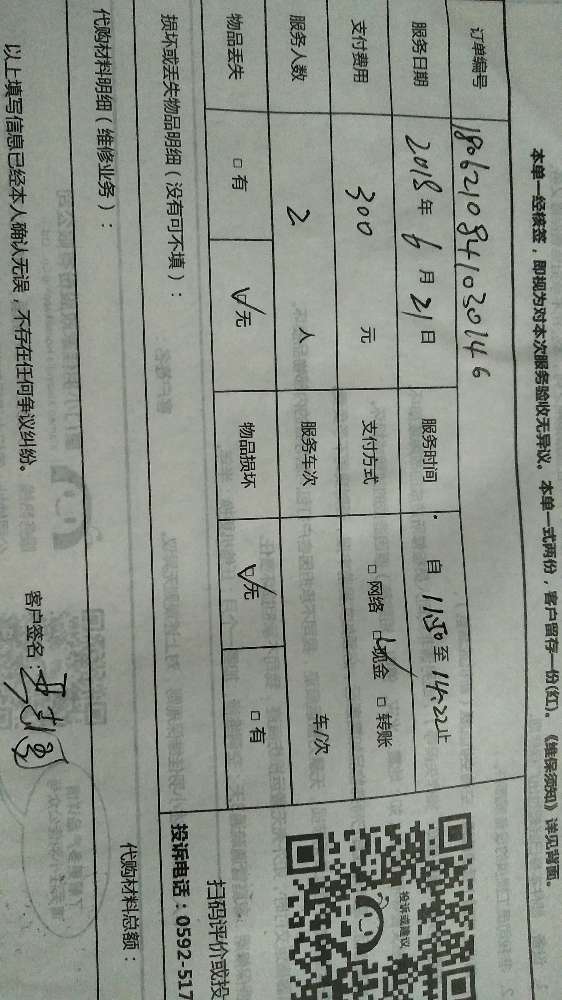 本单一经核签，即视为对本次服务验收无异议。本单一式两份，客户留存一份(红)。《维保须知》详见背面。
订单编号 1806210841030146
服务日期 2018年 6 月 21 日 服务时间 自 11:50 至 14:22止
支付费用 300 元 支付方式 □ 网络 ☑ 现金 □ 转账
服务人数 2 人 服务车次 车/次
物品丢失 □ 有 ☑无 物品损坏 ☑无 □ 有
损坏或丢失物品明细（没有可不填）：
投诉或建议
扫码评价或投
投诉电话：0592-517
代购材料明细（维修业务）：
代购材料总额：
以上填写信息已经本人确认无误，不存在任何争议纠纷。
客户签名：